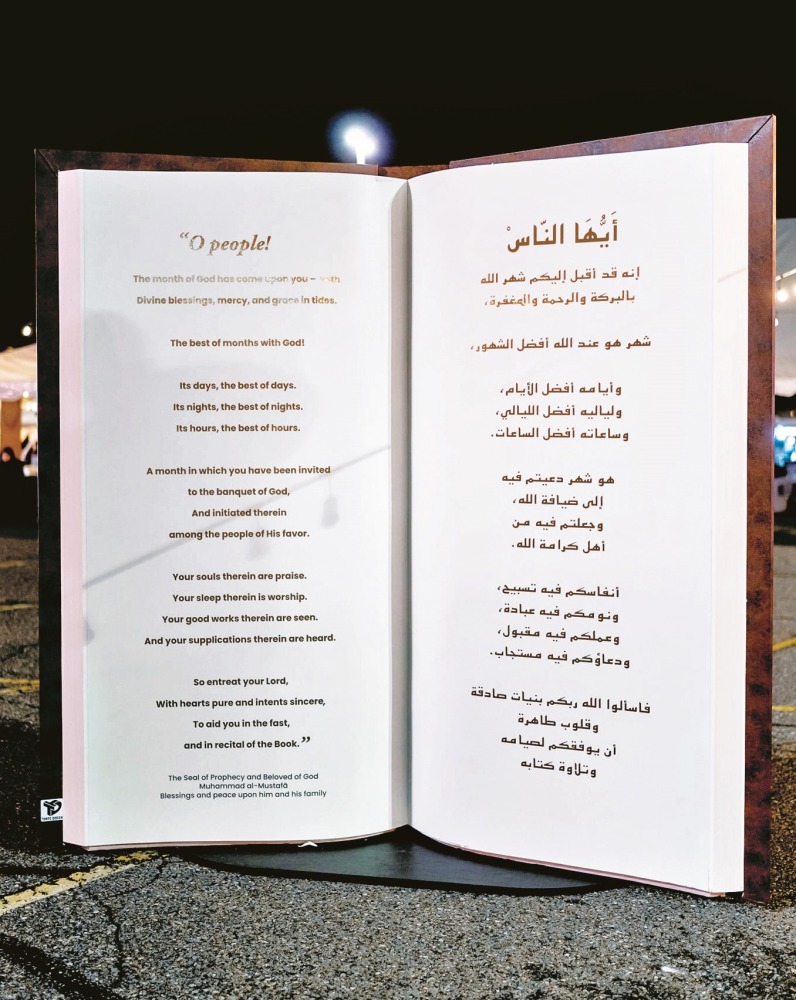 “O people!
The month of God has come upon you – with
Divine blessings, mercy, and grace in tides.
The best of months with God!
Its days, the best of days.
Its nights, the best of nights.
Its hours, the best of hours.
A month in which you have been invited
to the banquet of God,
And initiated therein
among the people of His favor.
Your souls therein are praise.
Your sleep therein is worship.
Your good works therein are seen.
And your supplications therein are heard.
So entreat your Lord,
With hearts pure and intents sincere,
To aid you in the fast,
and in recital of the Book.”
The Seal of Prophecy and Beloved of God
Muhammad al-Mustafā
Blessings and peace upon him and his family
أَيُّهَا النّاسْ
إنه قد أقبل إليكم شهر الله
بالبركة والرحمة والمغفرة،
شهر هو عند الله أفضل الشهور،
وأيامه أفضل الأيام،
ولياليه أفضل الليالي،
وساعاته أفضل الساعات.
هو شهر دعيتم فيه
إلى ضيافة الله،
وجعلتم فيه من
أهل كرامة الله.
أنفاسكم فيه تسبيح،
ونومكم فيه عبادة،
وعملكم فيه مقبول،
ودعاؤكم فيه مستجاب.
فاسألوا الله ربكم بنيات صادقة
وقلوب طاهرة
أن يوفقكم لصيامه
وتلاوة كتابه